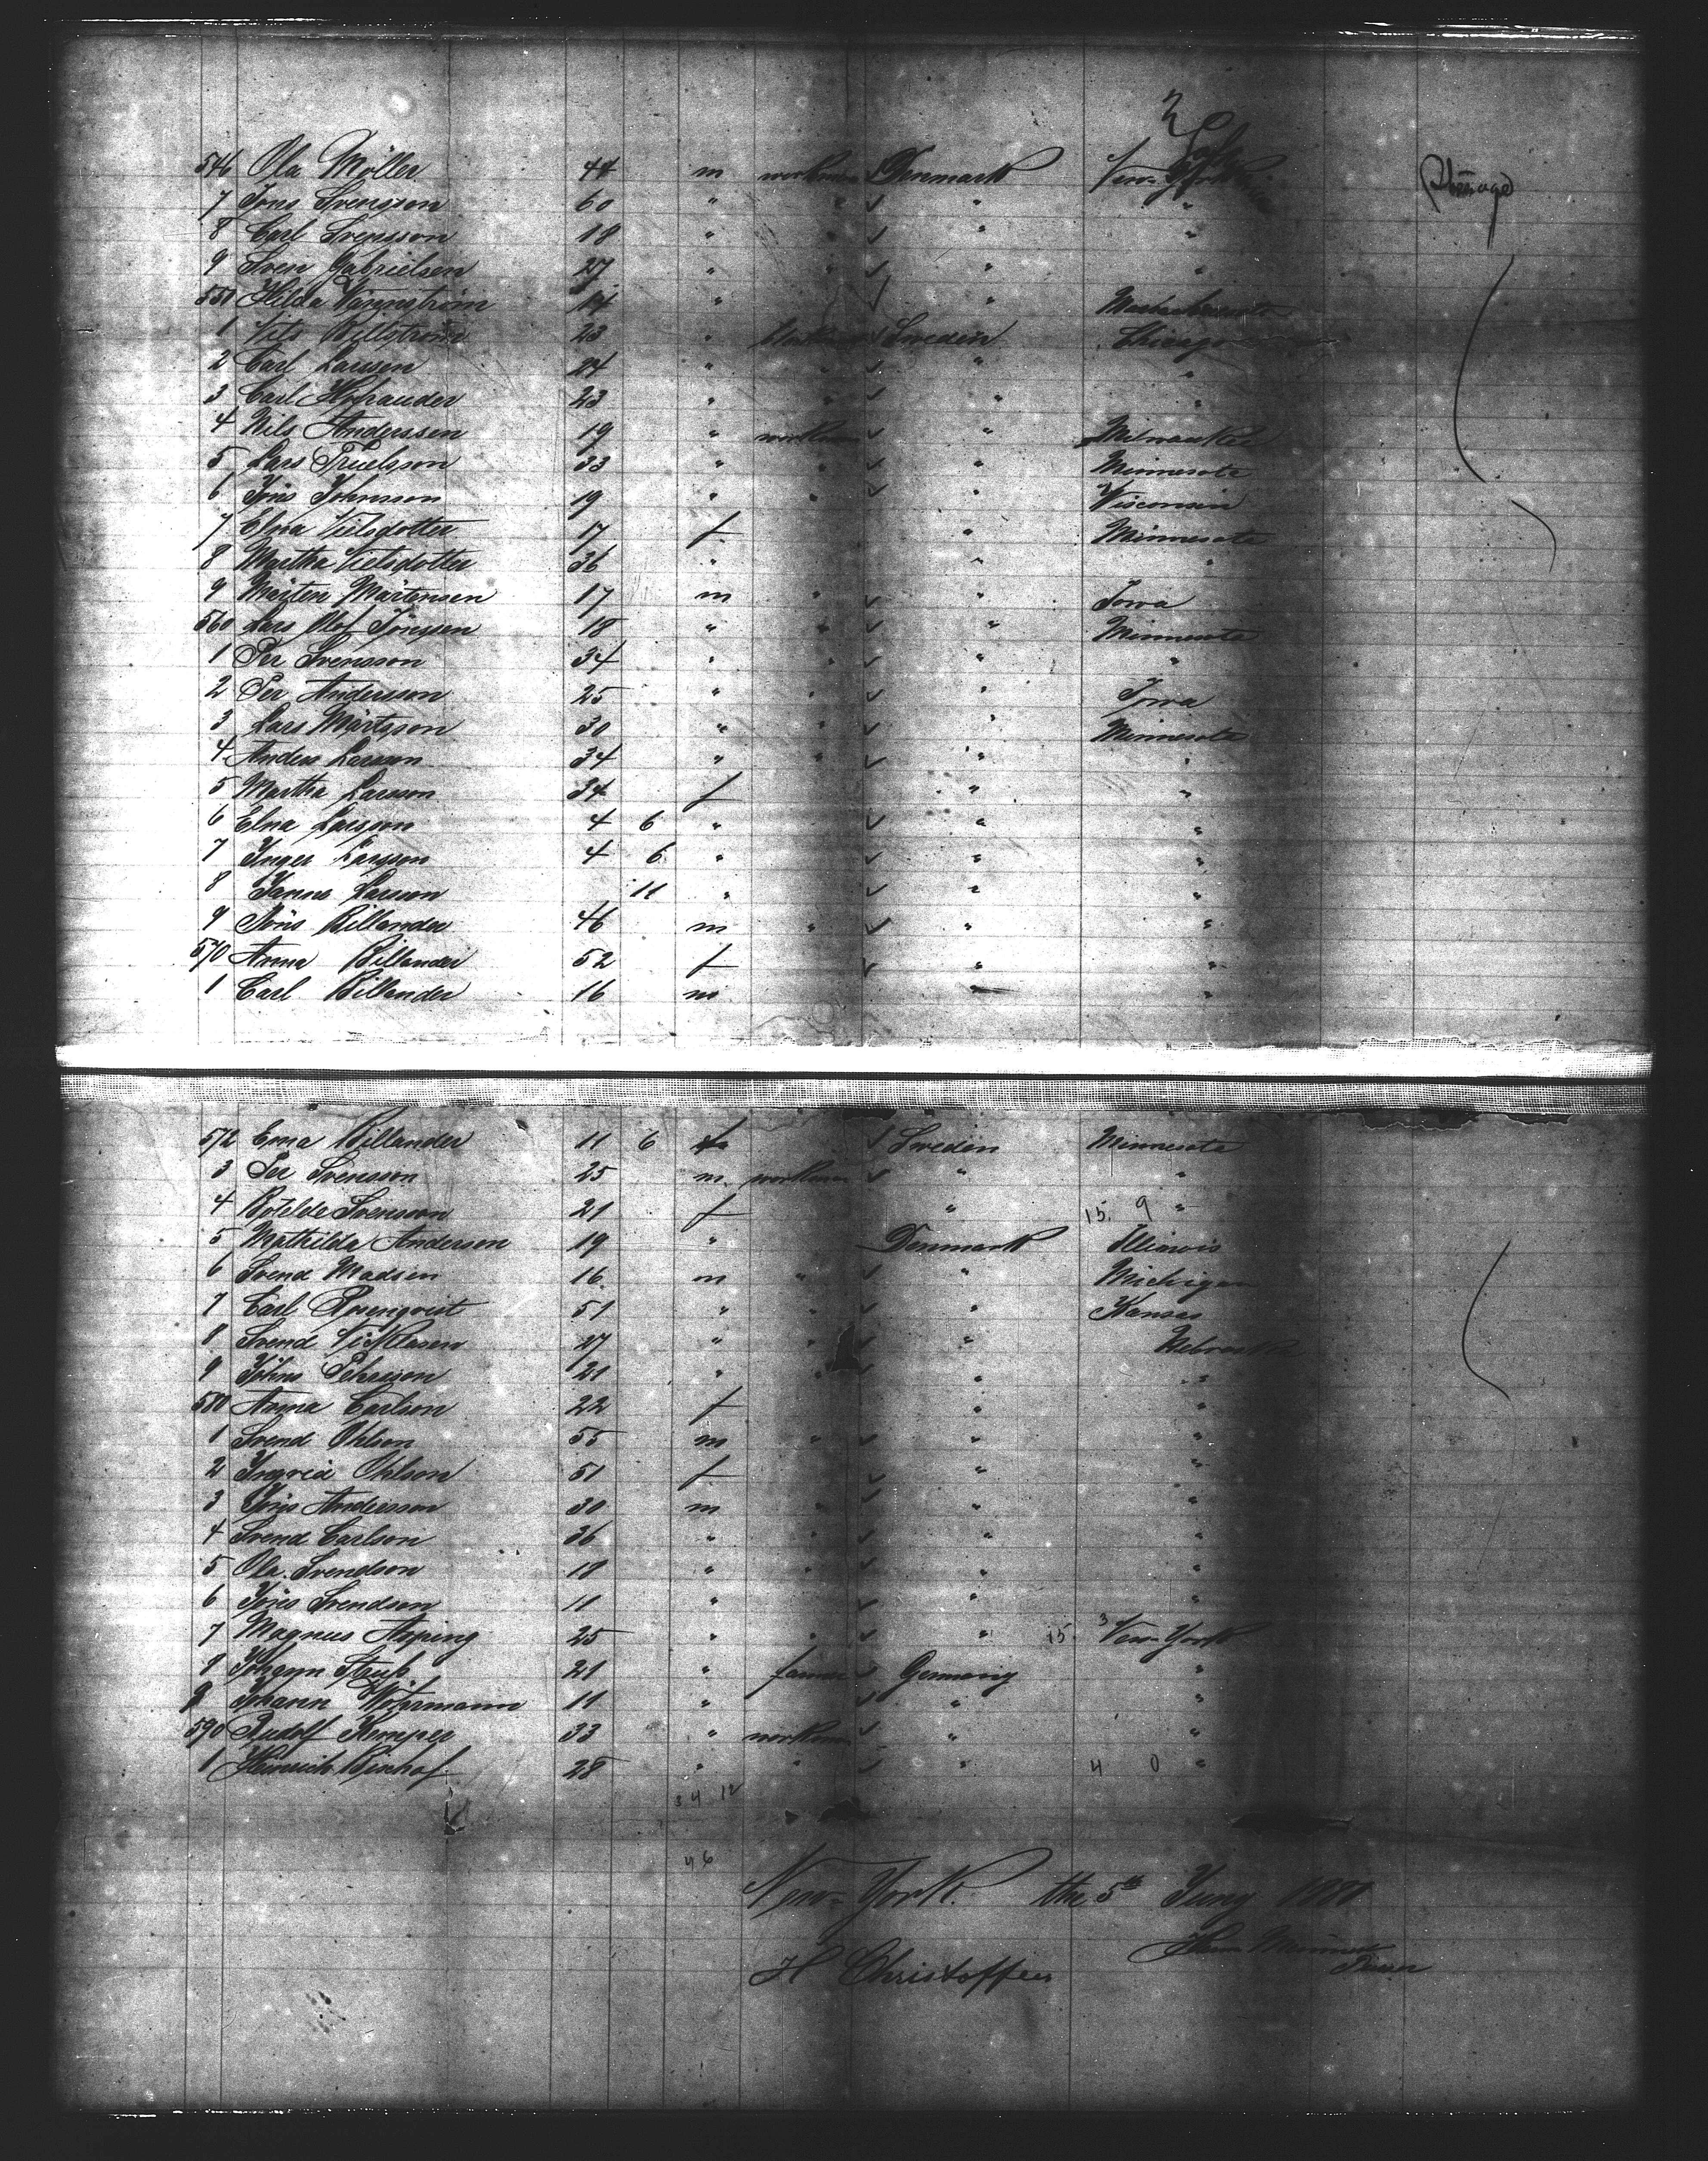 546 Ola Möller 44 m workman Denmark New-York
7 Jöns Svensson 60 " " " "
8 Carl Svensson 18 " " " "
9 Sven Gabrielsen 27 " " " "
550 Hilda 14 " "
1 23 " Sweden Chicago
2 Carl Larssen 24 " " "
3 Carl 23 " " " "
4 Nils Anderssen 19 " workman " Milwaukee
5 Lars Truelsson 33 " " " Minnesota
6 Jöns Johnsson 19 " " " Wisconsin
7 Elna Nielsdotter 17 f " Minnesota
8 Martha Nielsdotter 36 " " "
9 Mårten Mårtensen 17 m " " Iowa
560 Lars Olof Jönssen 18 " " " Minnesota
1 Per Svensson 34 " " " "
2 Per Andersson 25 " " " Iowa
3 Lars Mårtsson 30 " " " Minnesota
4 Anders Larsson 34 " " " "
5 Martha Larsson 34 f " "
6 Elna Larsson 4 6 " " "
7 Inger Larsson 4 6 " " "
8 Hanna Larsson 11 " " "
9 Jöns Billander 46 m " " "
570 Anna Billander 52 f " "
1 Carl Billander 16 m " "
572 Erna Billander 11 6 f Sweden Minnesota
3 Per Svensson 25 m workman " "
4 Botilde Svensson 21 f " 15. 9 "
5 Mathilda Anderson 19 " Denmark Illinois
6 Svend Madsen 16 m " " Michigan
7 Carl Rosenqvist 51 " " " Kansas
8 Svend Nicklasen 27 " " " Nebraska
9 Johns Pehrsson 21 " " " "
580 Anna Carlson 22 f " "
1 Svend Ohlson 55 m " " "
2 Ingrid Ohlson 51 f " "
3 Jöns Andersson 30 m " " "
4 Svend Carlson 36 " " " "
5 Ola Svendson 18 " " " "
6 Jöns Svendson 11 " " "
7 Magnus Asping 25 " " " 15. 3 New-York
8 Johann 21 " farmer Germany "
9 Johann 11 " " "
590 Rudolf Kemper 33 " workman " "
1 Heinrich Bischof 28 " " " 4 0 "
34 12
46
New-York. the 5th Juny
H Christoffers